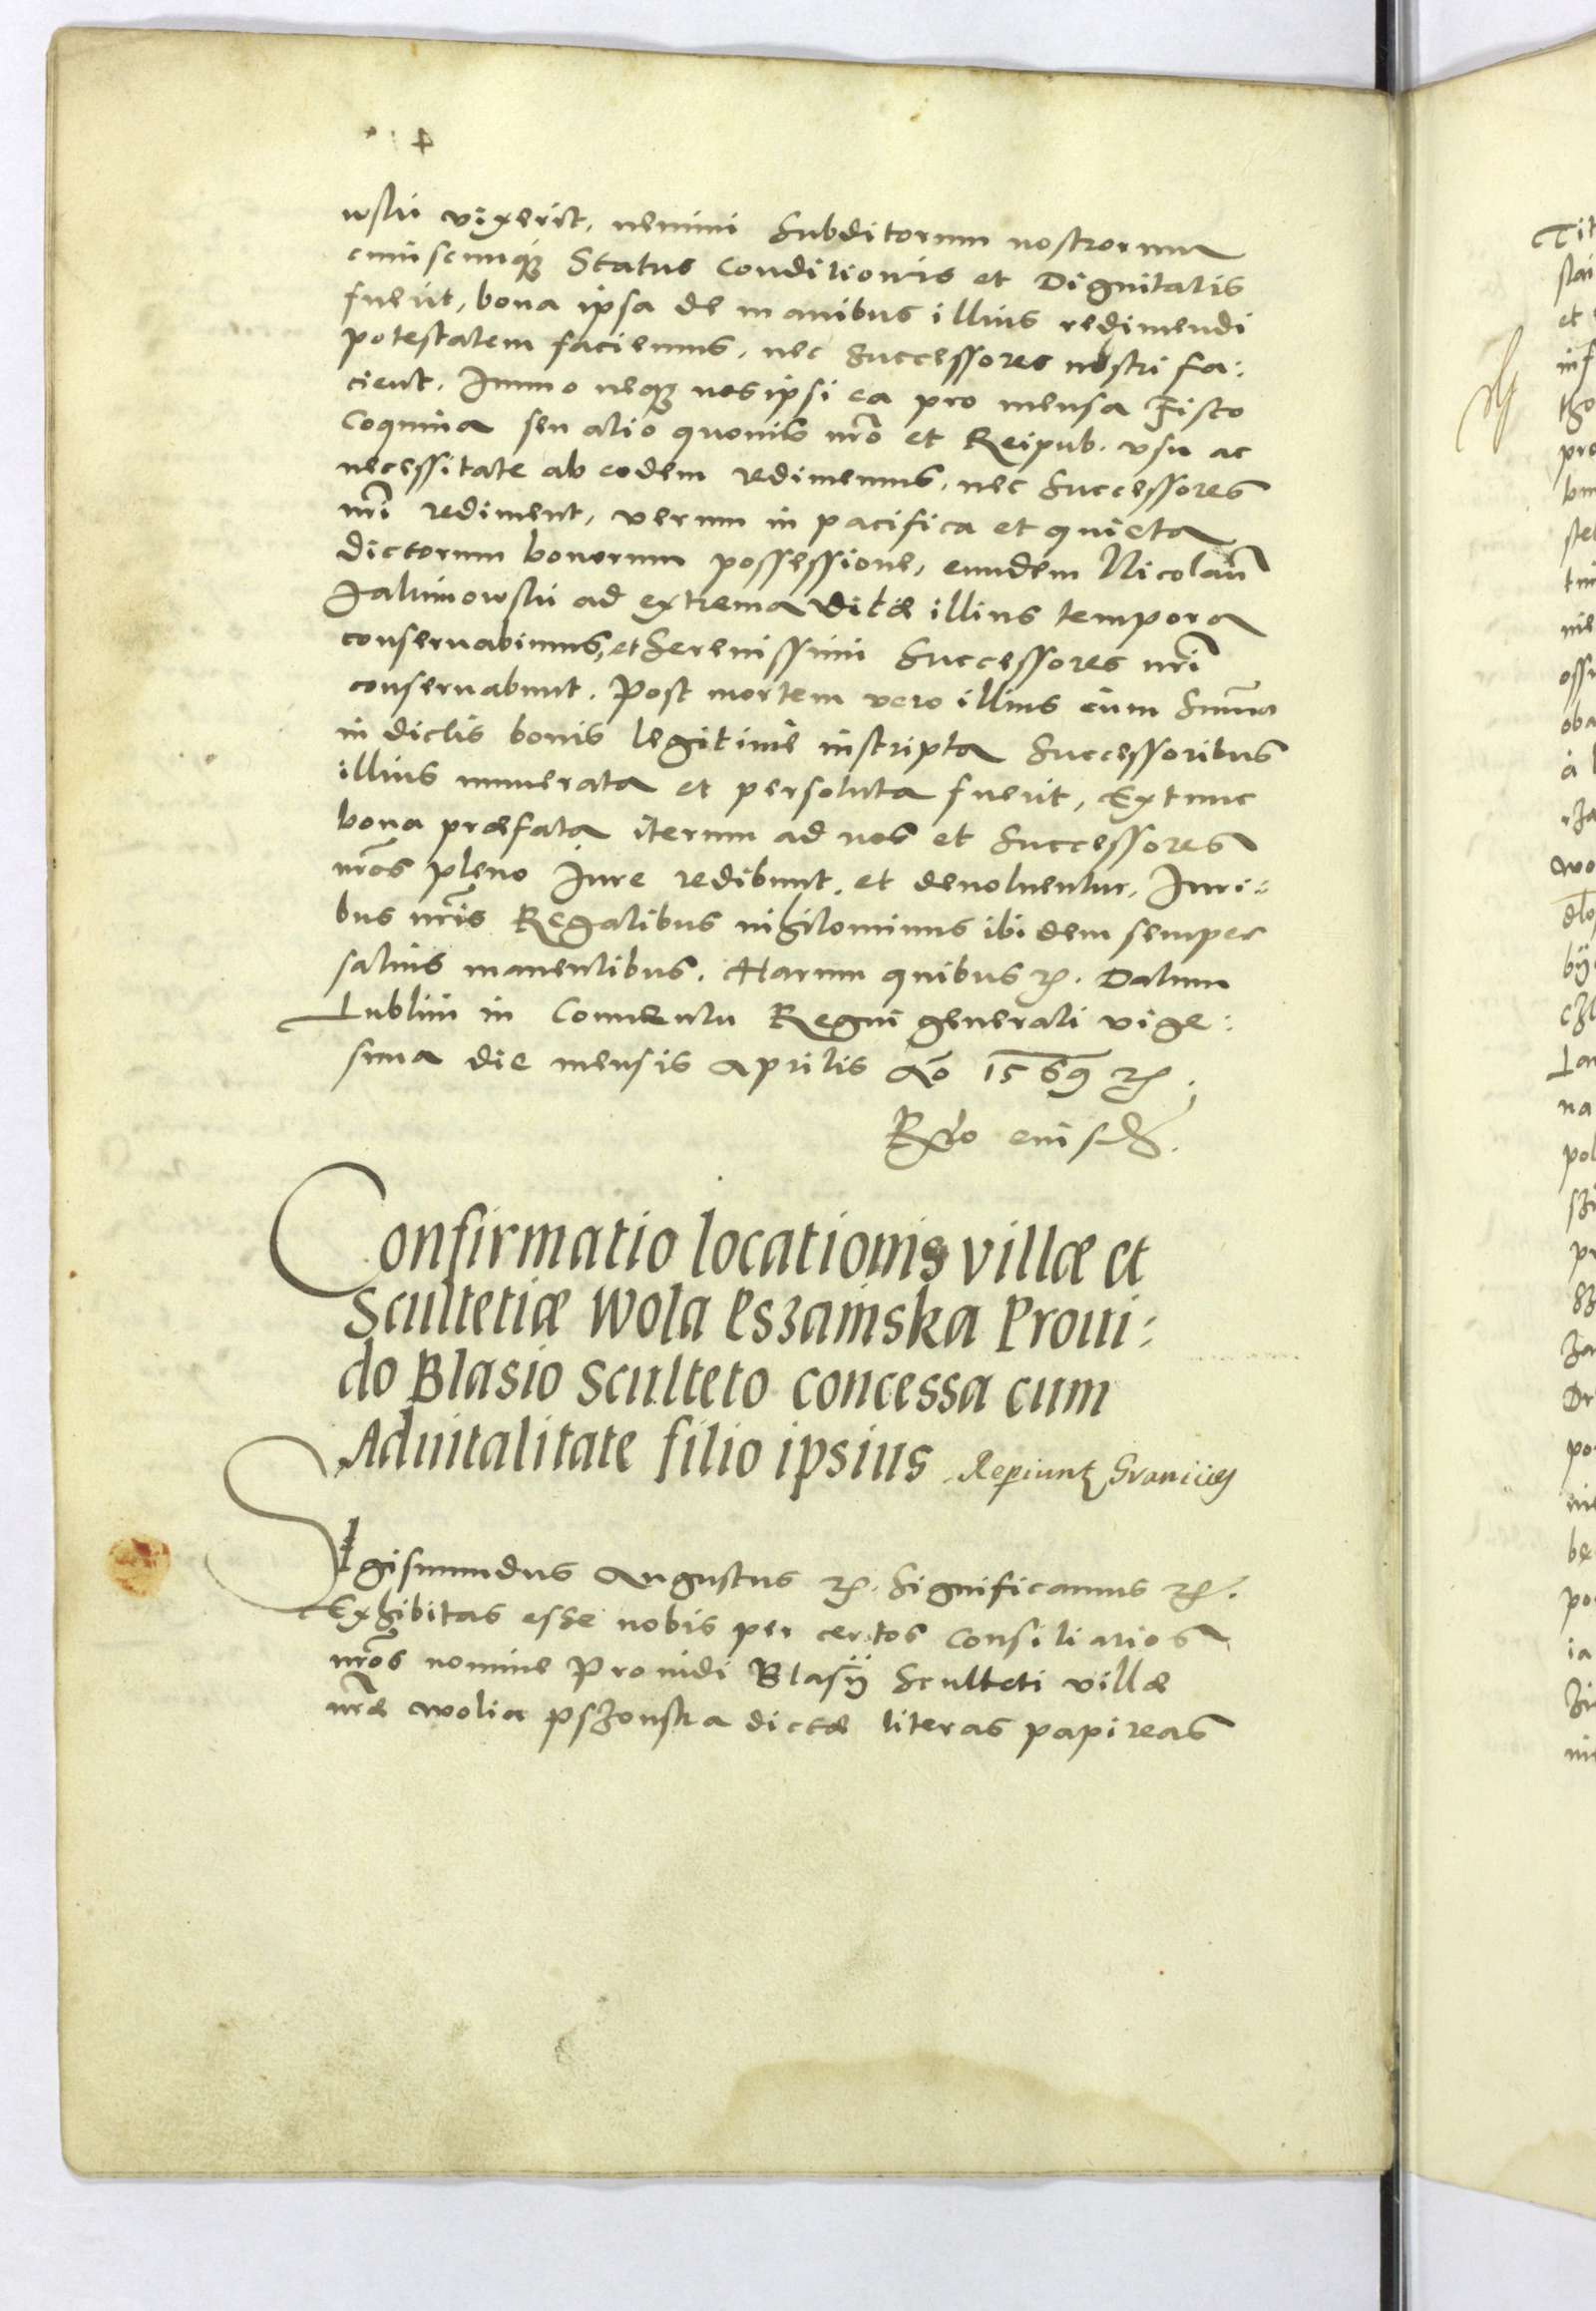 wski vixerit, nemini Subditorum nostrorum
cuiuscunq; Status Conditionis et Dignitatis
fuerit, bona ipsa de manibus illius redimendi
potestatem faciemus, nec Successores nostri fa:
cient. Immo neq; nos ipsi ea pro mensa Fisco
Coquina seu alio quouis nro et Reipub. vsu ac
necessitate ab eodem redimemus, nec Successores
nri rediment, verum in pacifica et quieta
dictorum bonorum possessione, eundem Nicolaum
Jalumowski ad extrema vitæ illius tempora
conseruabimus, et Serenissimi Successores nri
conseruabunt. Post mortem vero illius cum Suma
in dictis bonis legitime inscripta Successoribus
illius numerata et persoluta fuerit, Extunc
bona præfata iterum ad nos et Successores
nros pleno Jure redibunt, et deuoluentur, Juri:
bus nris Regalibus nihilominus ibidem semper
saluis manentibus. Harum quibus etc. Datum
Lublini in Conuentu Regni generali vige:
sima die mensis Aprilis Ao 1569 etc.
Rlo eiusd.
Confirmatio locationis villæ et
Scultetiæ Wola Pszainska Proui:
do Blasio Sculteto concessa cum
Aduitalitate filio ipsius
Sigismundus Augustus etc. Significamus etc.
Exhibitas esse nobis per certos Consiliarios
nros nomine Prouidi Blasij Sculteti villæ
nræ wolia pszonska dictæ literas papireas